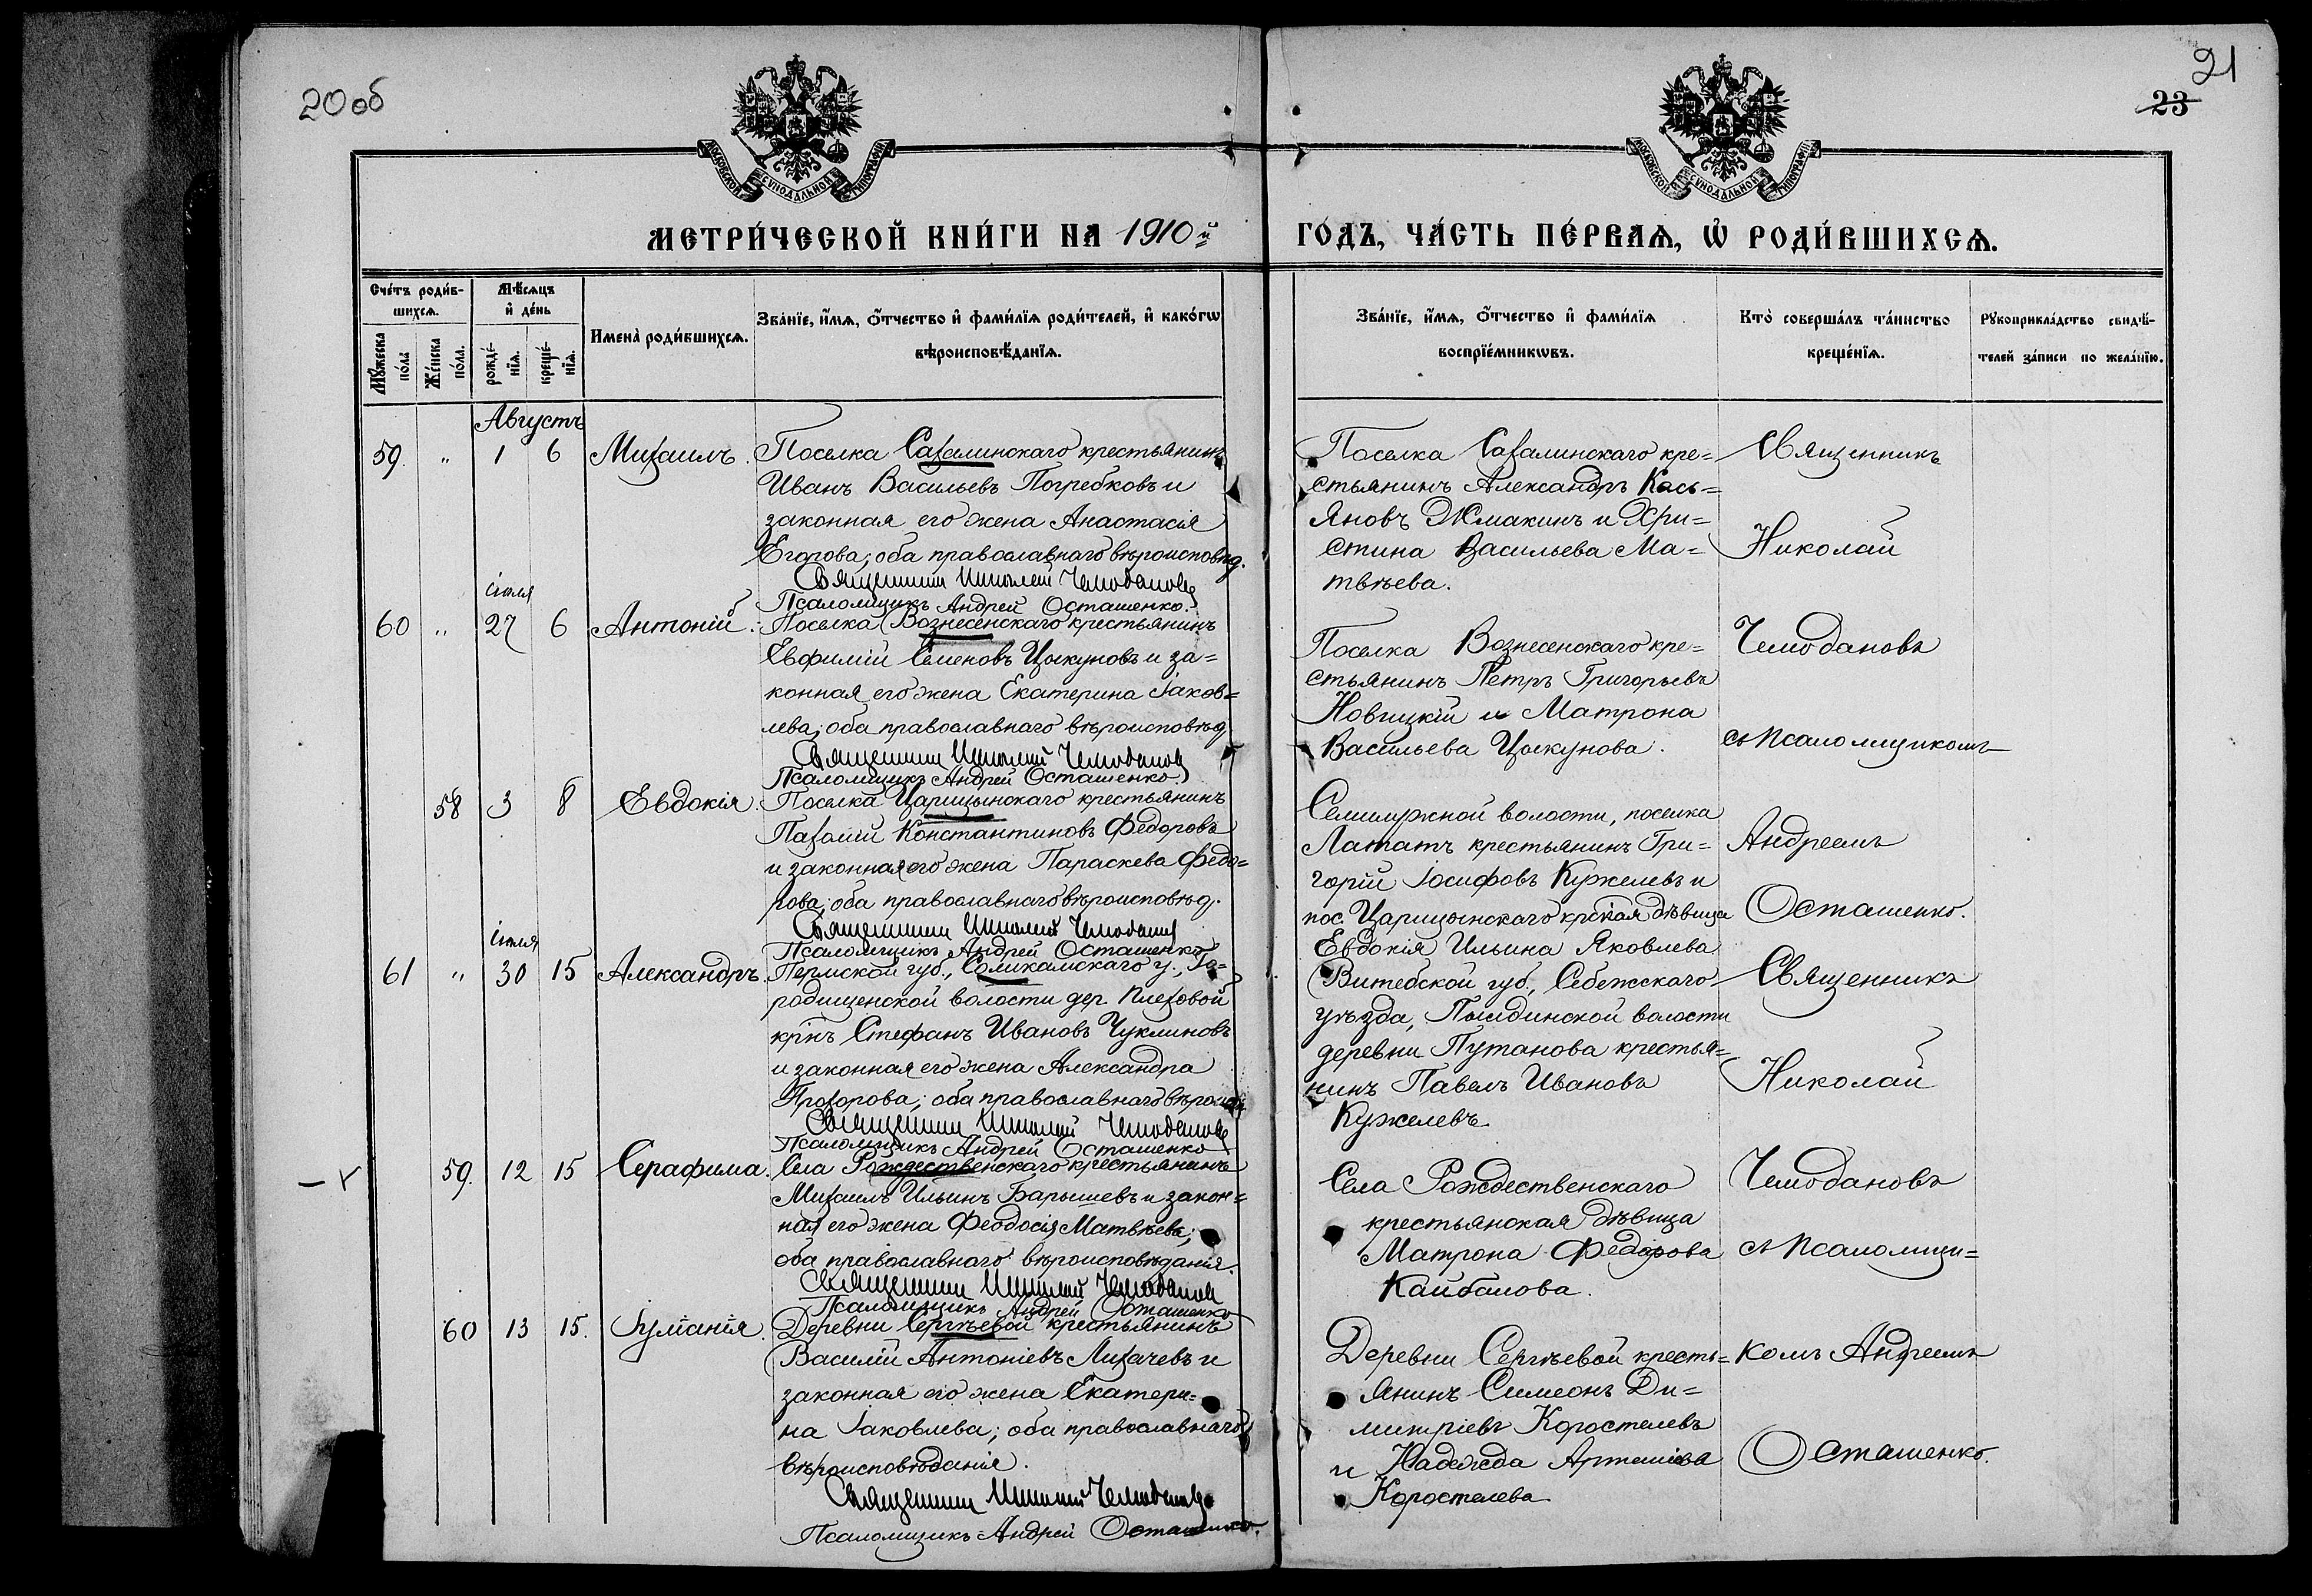 20 об
21
23
МОСКОВСКОЙ СѴНОДАЛЬНОЙ ТИПОГРАФІИ
МОСКОВСКОЙ СѴНОДАЛЬНОЙ ТИПОГРАФІИ
МЕТРИ́ЧЕСКОЙ КНИ́ГИ НА 1910й
ГО́ДЪ, ЧА́СТЬ ПЕ́РВАѦ, Ѡ҆ РОДИ́ВШИХСѦ.
Сче́тъ роди́в-
шихсѧ.
Мꙋ́жеска по́ла
Же́нска по́ла.
Мѣ́сѧцъ
и҆ де́нь
рожде́-нїѧ.
креще́-нїѧ.
Имена̀ роди́вшихсѧ.
Зва́нїе, и҆́мѧ, ѻ҆́тчество и҆ фами́лїѧ роди́телей, и҆ како́гѡ
вѣроисповѣ́данїѧ.
Зва́нїе, и҆́мѧ, ѻ҆́тчество и҆ фами́лїѧ
воспрїе́мникѡвъ.
Кто̀ соверша́лъ та́инство
креще́нїѧ.
Рꙋкоприкла́дство свидѣ́-
телей за́писи по жела́нїю.
Августъ
59. " 1 6 Михаилъ. Поселка Сахалинскаго крестьянинъ
Иванъ Васильевъ Погребковъ и
законная его жена Анастасія
Егорова; оба православнаго вѣроисповѣд.
Священникъ Николай Чемодановъ
Псаломщикъ Андрей Осташенко.
Поселка Сахалинскаго кре=
стьянинъ Александръ Кась=
яновъ Жмакинъ и Хри=
стина Васильева Ма=
твѣева.
Священникъ
Николай
іюля
60 " 27 6 Антоній. Поселка Вознесенскаго крестьянинъ
Евфимій Семеновъ Цыкуновъ и за=
конная его жена Екатерина Іаков=
лева; оба православнаго вѣроисповѣд.
Священникъ Николай Чемодановъ
Псаломщикъ Андрей Осташенко
Поселка Вознесенскаго кре=
стьянинъ Петръ Григорьевъ
Новицкій и Матрона
Васильева Цыкунова.
Чемодановъ
съ псаломщикомъ
58 3 8 Евдокія. Поселка Царицынскаго крестьянинъ
Пахомій Константиновъ Федоровъ
и законная его жена Параскева Федо=
рова; оба православнаго вѣроисповѣд.
Священникъ Николай Чемодановъ
Псаломщикъ Андрей Осташенко
волости, поселка
Лататъ крестьянинъ Гри=
горій Іосифовъ Кужелевъ и
пос. Царицынскаго кр̃ская дѣвица
Евдокія Ильина Яковлева
Андреемъ
Осташенко.
іюля
61 " 30 15 Александръ. Пермской губ., Соликамскаго у., Го=
родищенской волости дер. Плеховой
кр̃нъ Стефанъ Ивановъ Чуклиновъ
и законная его жена Александра
Прохорова; оба православнаго вѣроисп.
Священникъ Николай Чемодановъ
Псаломщикъ Андрей Осташенко
Витебской губ., Себежскаго
уѣзда, волости
деревни Путанова крестья=
нинъ Павелъ Ивановъ
Кужелевъ
Священникъ
Николай
59. 12 15 Серафима. Села Рождественскаго крестьянинъ
Михаилъ Ильинъ Барышевъ и закон=
ная его жена Феодосія Матвѣева;
оба православнаго вѣроисповѣданія.
Священникъ Николай Чемодановъ
Псаломщикъ Андрей Осташенко
Села Рождественскаго
крестьянская дѣвица
Матрона Федорова
Кайбалова.
Чемодановъ
съ псаломщи=
60 13 15. Іуліанія. Деревни Сергѣевой крестьянинъ
Василій Антоніевъ Лихачевъ и
законная его жена Екатери=
на Іаковлева; оба православнаго
вѣроисповѣданія.
Священникъ Николай Чемодановъ
Псаломщикъ Андрей Осташенко.
Деревни Сергѣевой кресть=
янинъ Симеонъ Ди=
митріевъ Коростелевъ
и Надежда Артеміева
Коростелева
комъ Андреемъ
Осташенко.